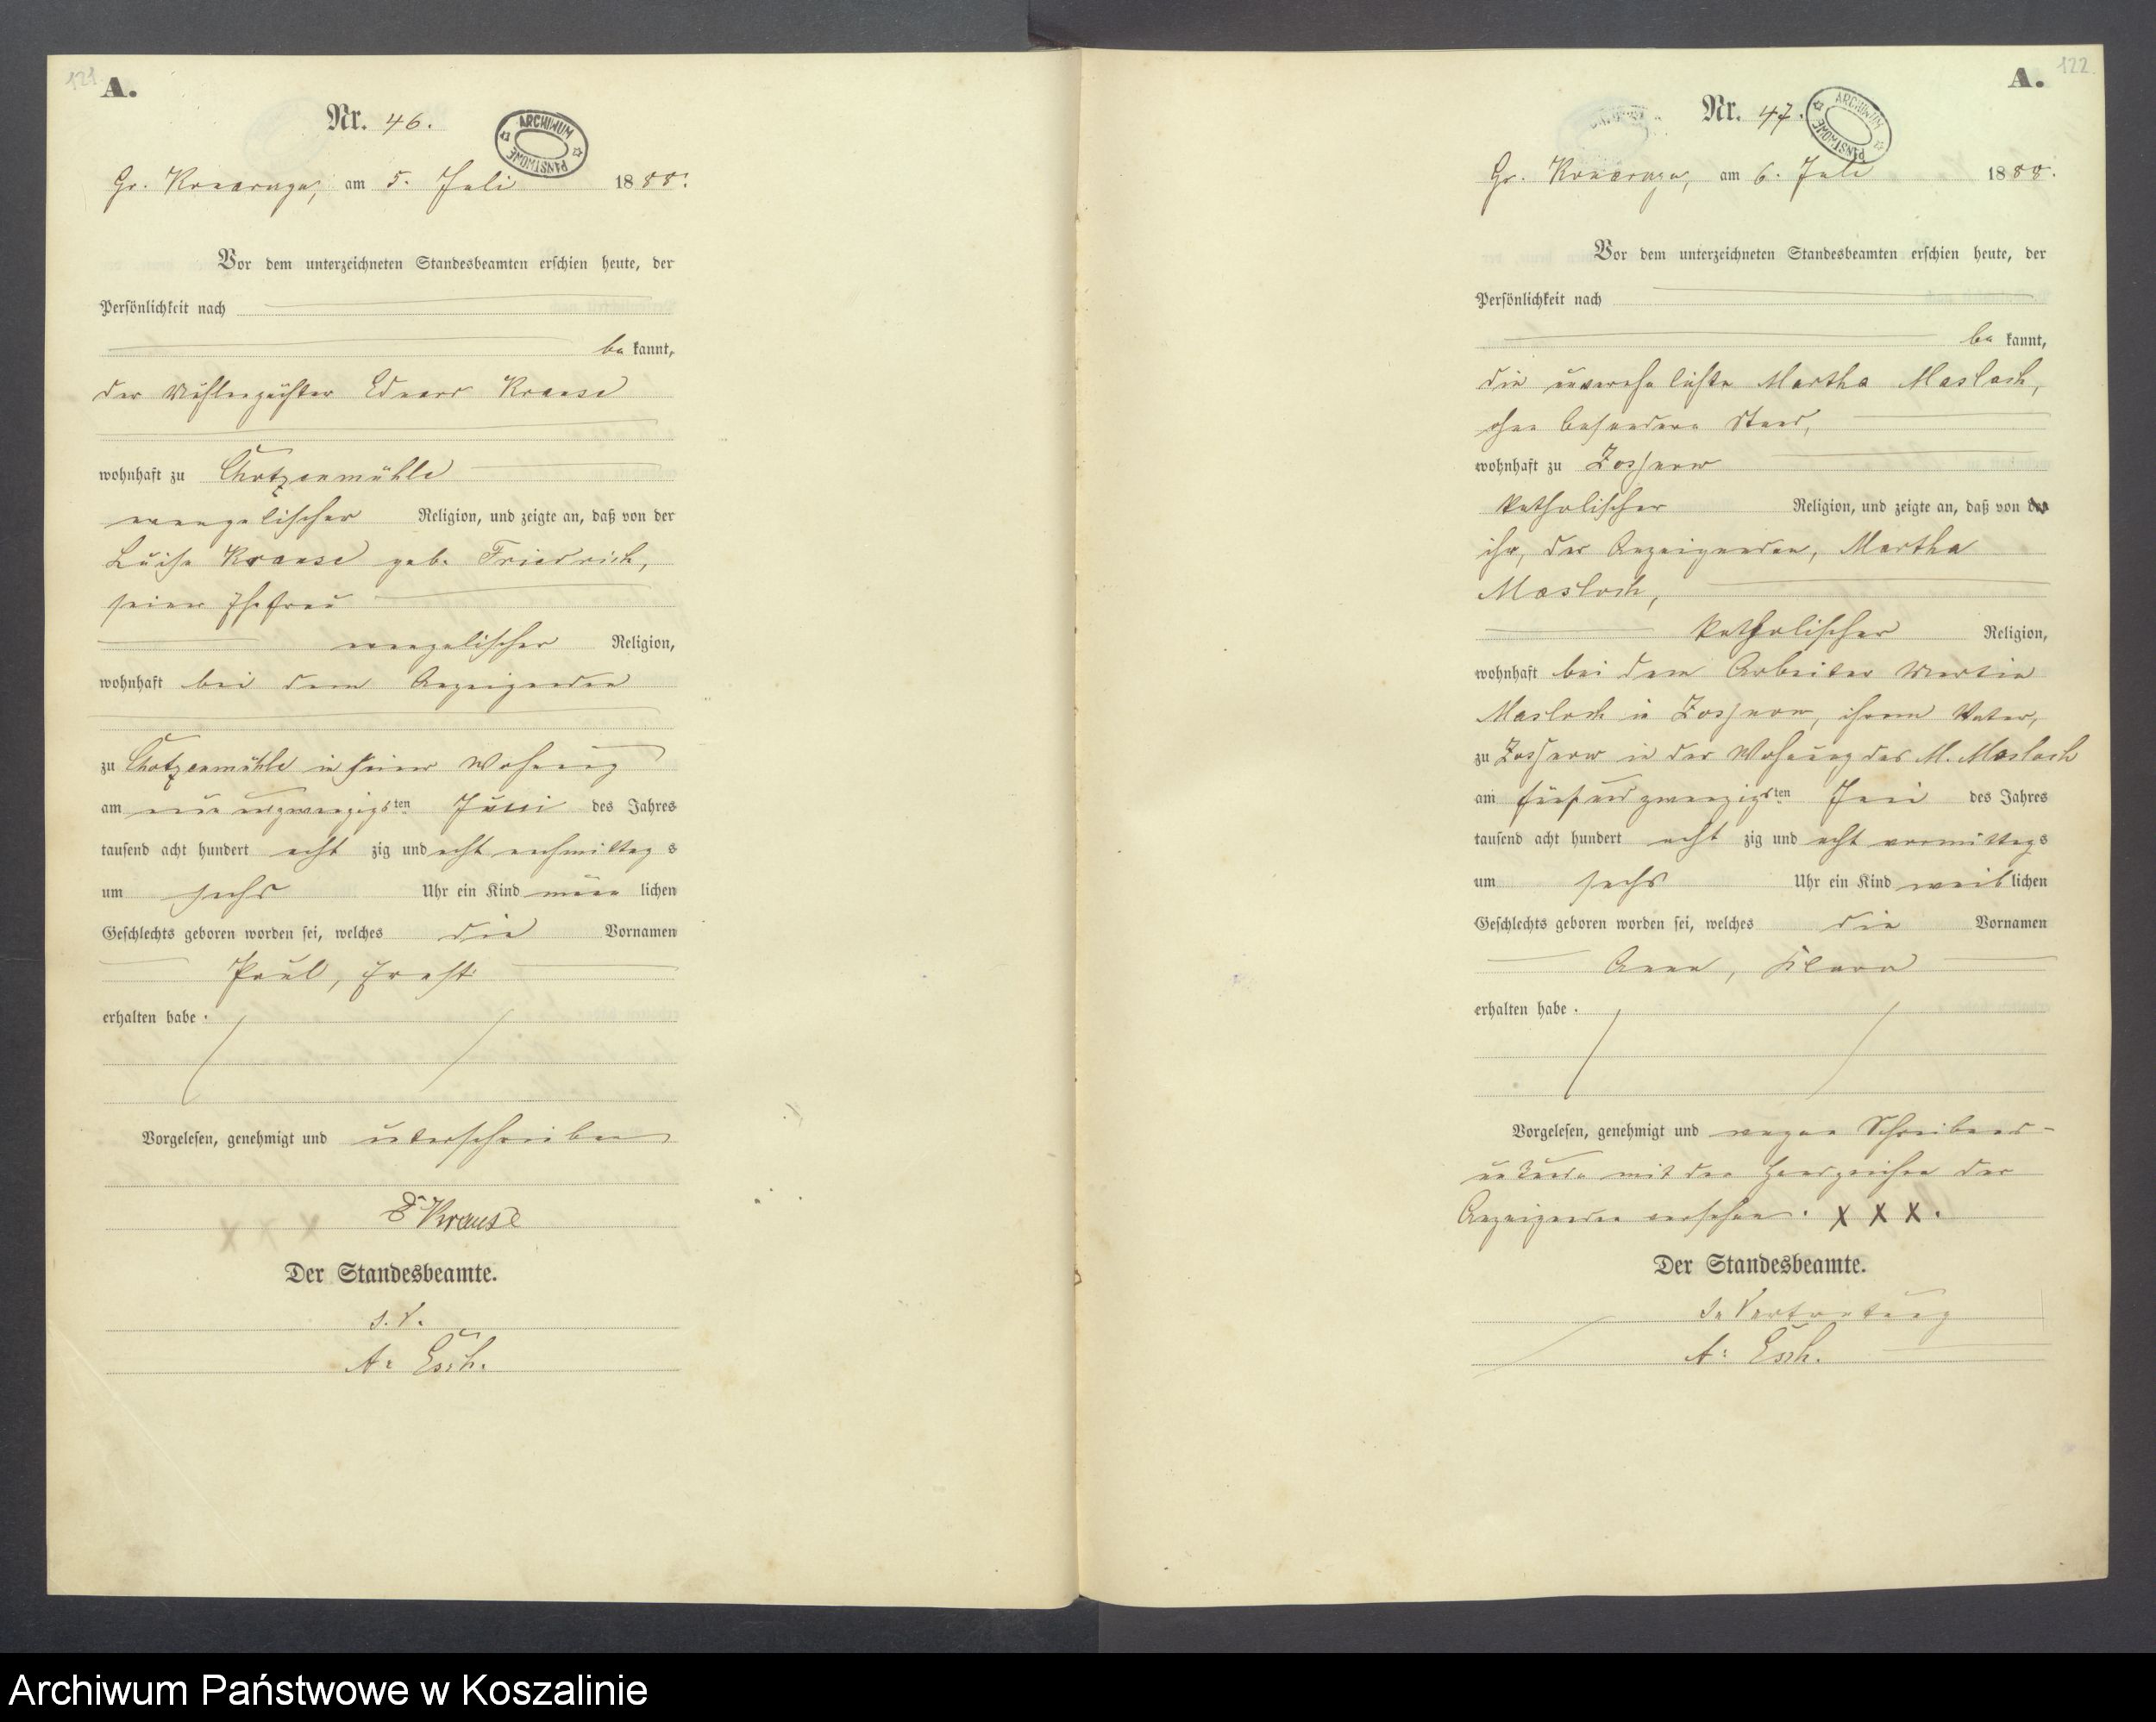 121
A.
Nr. 46.
ARCHIWUM PAŃSTWOWE
Gr. Konarczyn, am 5. Juli 1888.
Vor dem unterzeichneten Standesbeamten erschien heute, der
Persönlichkeit nach
be kannt,
der Mühlenpächter Eduard Krause
wohnhaft zu Chotzenmühle
evangelischer Religion, und zeigte an, daß von der
Luise Krause geb. Friedrich,
seiner Ehefrau
evangelischer Religion,
wohnhaft bei dem Anzeigenden
zu Chotzenmühle in seiner Wohnung
am neun und zwanzigsten Juni des Jahres
tausend acht hundert acht zig und acht nachmittag s
um sechs Uhr ein Kind männ lichen
Geschlechts geboren worden sei, welches die Vornamen
Paul, Ernst
erhalten habe.
Vorgelesen, genehmigt und unterschrieben
E Krause
Der Standesbeamte.
I. V.
A. Esch.
122
A.
Nr. 47.
ARCHIWUM PAŃSTWOWE
Gr. Konarczyn, am 6. Juli 1888.
Vor dem unterzeichneten Standesbeamten erschien heute, der
Persönlichkeit nach
be kannt,
die unverehelichte Martha Masloch,
ohne besonderen Stand,
wohnhaft zu Zossnow
katholischer Religion, und zeigte an, daß von der
ihr, der Anzeigenden, Martha
Masloch,
katholischer Religion,
wohnhaft bei dem Arbeiter Martin
Masloch in Zossnow, ihrem Vater,
zu Zossnow in der Wohnung des M. Masloch
am fünf und zwanzigsten Juni des Jahres
tausend acht hundert acht zig und acht vormittags
um sechs Uhr ein Kind weib lichen
Geschlechts geboren worden sei, welches die Vornamen
Anna, Klara
erhalten habe.
Vorgelesen, genehmigt und wegen Schreibens-
unkunde mit den Handzeichen der
Anzeigenden versehen. X X X.
Der Standesbeamte.
In Vertretung
A. Esch.
Archiwum Państwowe w Koszalinie